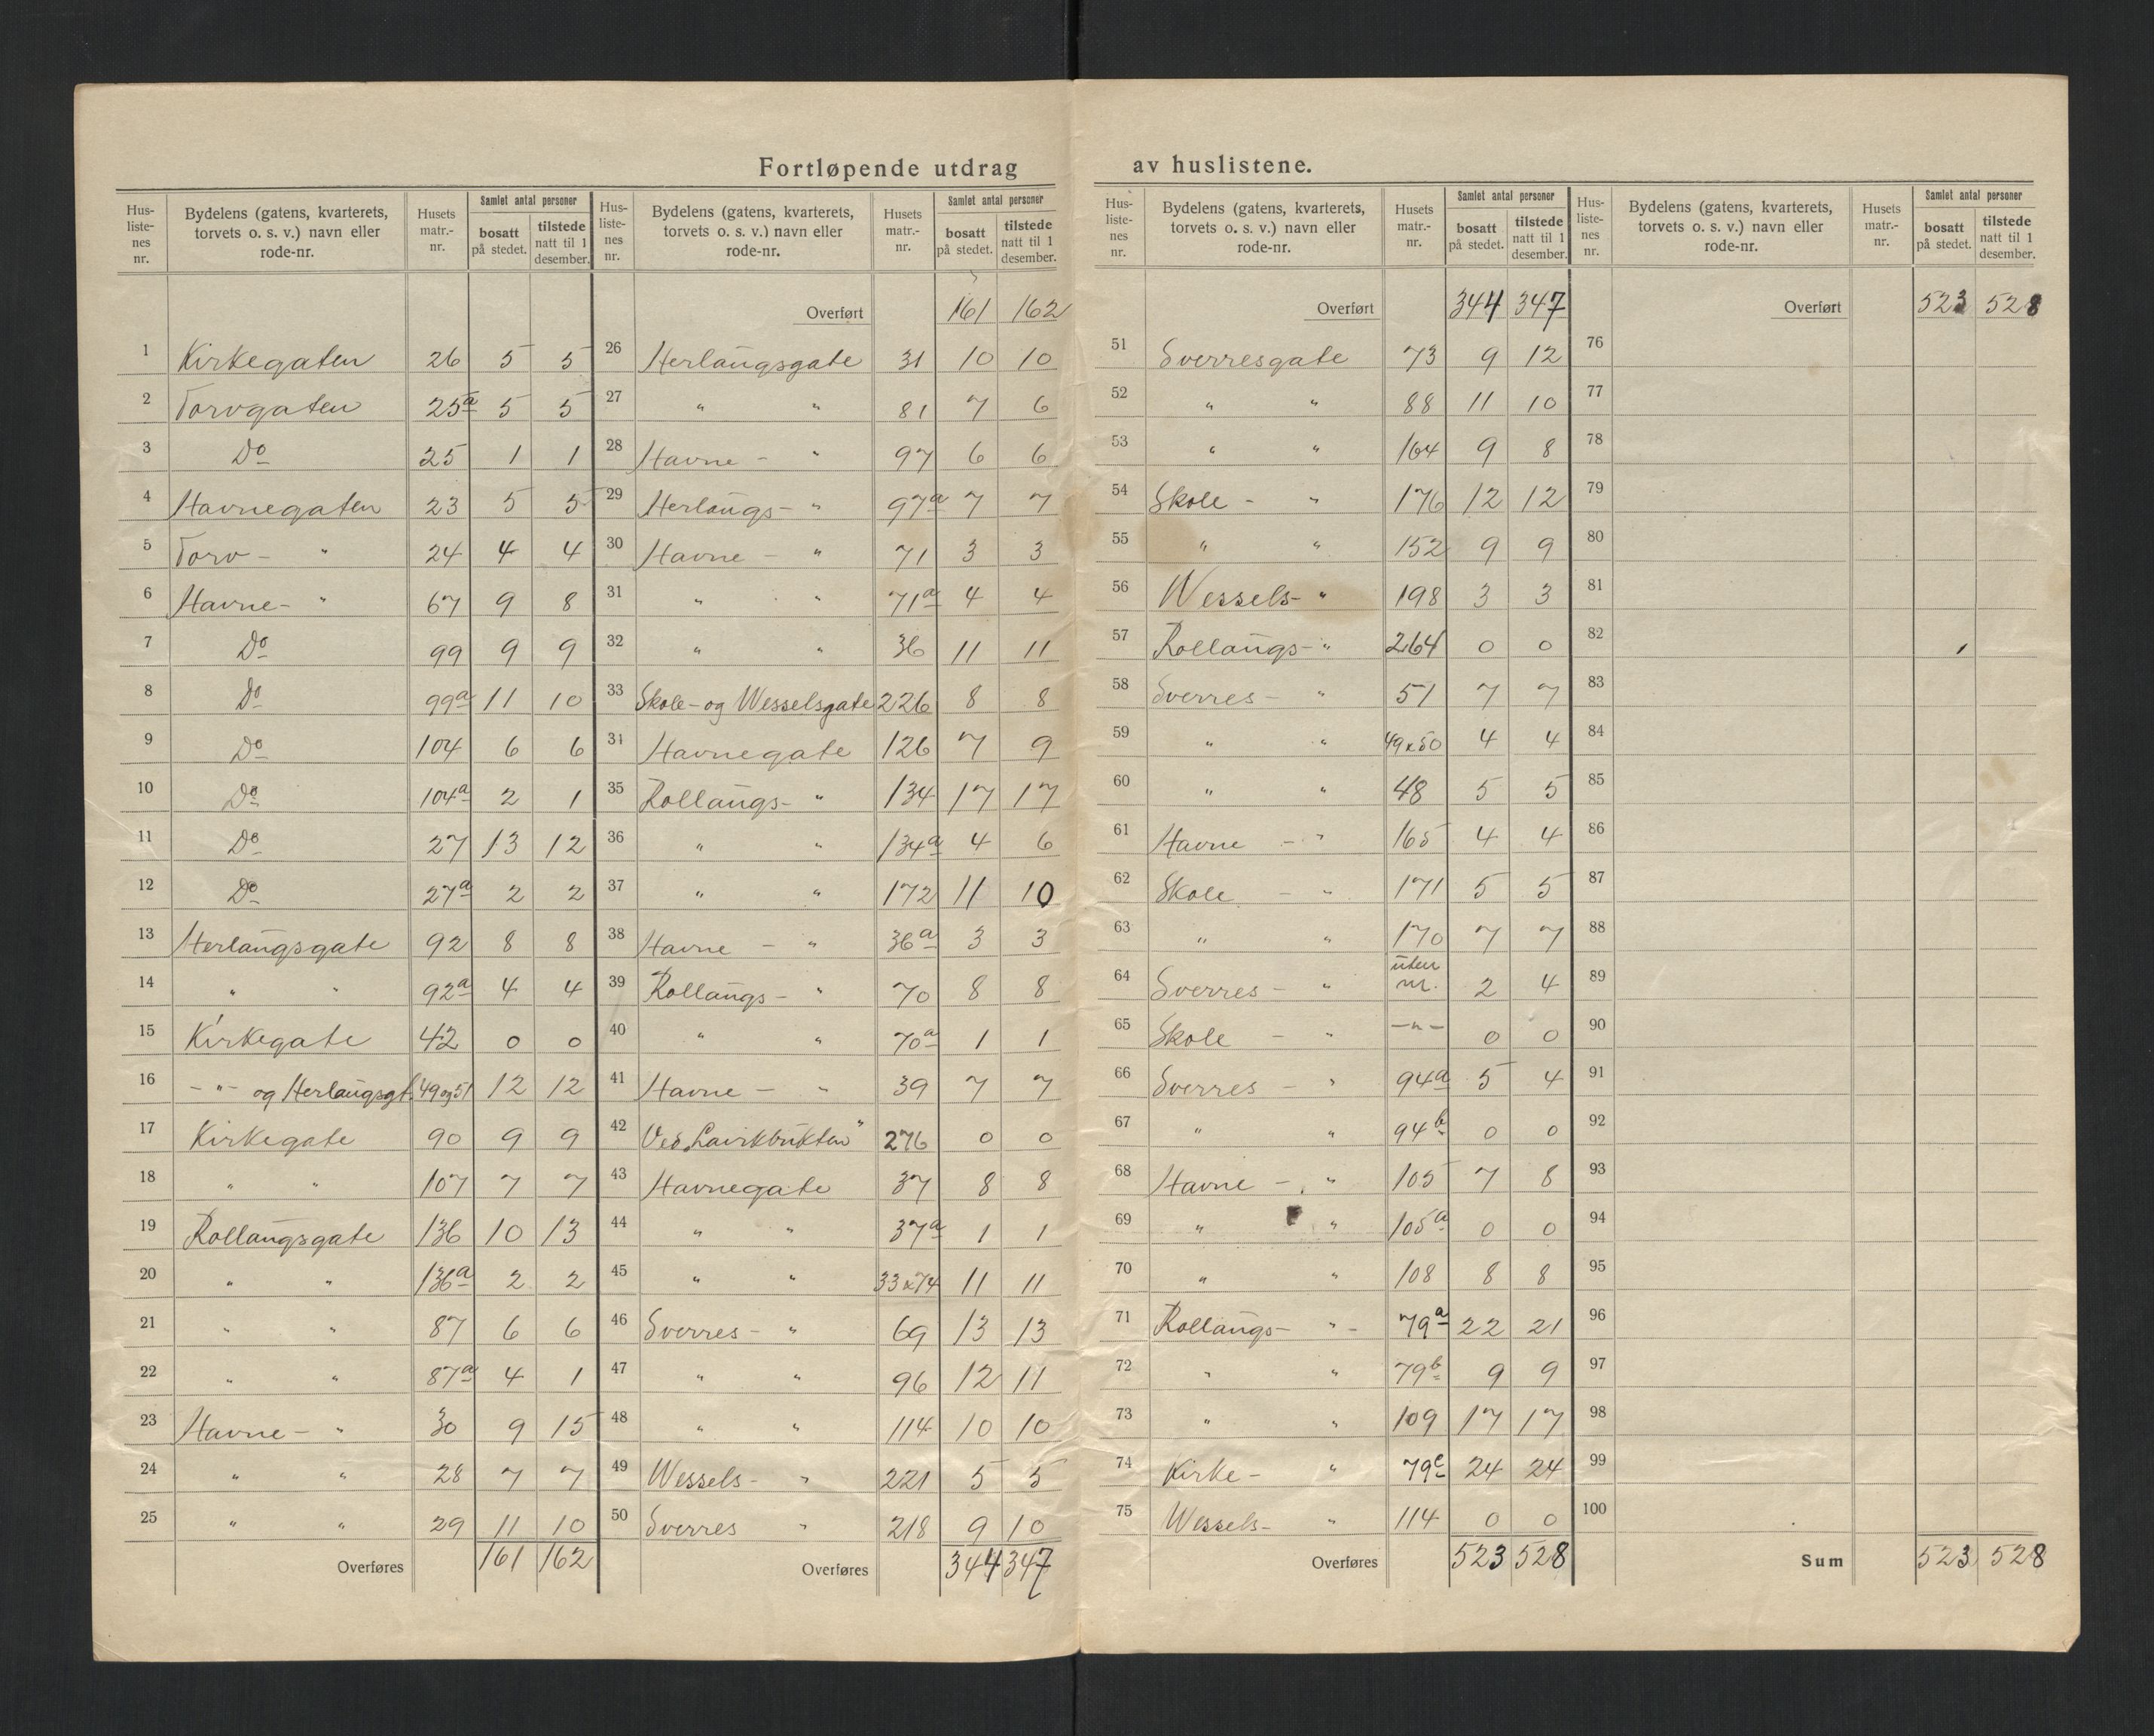 Fortløpende utdrag av huslistene.
Hus-liste-nes nr. | Bydelens (gatens, kvarterets, torvets o. s. v.) navn eller rode-nr. | Husets matr.-nr. | Samlet antal personer bosatt på stedet. | tilstede natt til 1 desember.
1 Kirkegaten 26 5 5
2 Torvgaten 25a 5 5
3 Do 25 1 1
4 Havnegaten 23 5 5
5 Torv- " 24 4 4
6 Havne- " 67 9 8
7 Do 99 9 9
8 Do 99a 11 10
9 Do 104 6 6
10 Do 104a 2 1
11 Do 27 13 12
12 Do 27a 2 2
13 Herlaugsgate 92 8 8
14 " " 92a 4 4
15 Kirkegate 42 0 0
16 -"- og Herlaugsgt. 49 og 51 12 12
17 Kirkegate 90 9 9
18 " " 107 7 7
19 Rollaugsgate 136 10 13
20 " " 136a 2 2
21 " " 87 6 6
22 " " 87a 4 1
23 Havne- " 30 9 15
24 " " 28 7 7
25 " " 29 11 10
Overføres 161 162
Hus-liste-nes nr. | Bydelens (gatens, kvarterets, torvets o. s. v.) navn eller rode-nr. | Husets matr.-nr. | Samlet antal personer bosatt på stedet. | tilstede natt til 1 desember.
Overført 161 162
26 Herlaugsgate 31 10 10
27 " " 81 7 6
28 Havne- " 97 6 6
29 Herlaugs- " 97a 7 7
30 Havne- " 71 3 3
31 " " 71a 4 4
32 " " 36 11 11
33 Skole- og Wesselsgate 226 8 8
34 Havnegate 126 7 9
35 Rollaugs- " 134 17 17
36 " " 134a 4 6
37 " " 172 11 10
38 Havne - " 36a 3 3
39 Rollaugs- " 70 8 8
40 " " 70a 1 1
41 Havne- " 39 7 7
42 Ved " 276 0 0
43 Havnegate 37 8 8
44 " " 37a 1 1
45 " " 33 x 74 11 11
46 Sverres- " 69 13 13
47 " " 96 12 11
48 " " 114 10 10
49 Wessels- " 221 5 5
50 Sverres " 218 9 10
Overføres 344 347
Hus-liste-nes nr. | Bydelens (gatens, kvarterets, torvets o. s. v.) navn eller rode-nr. | Husets matr.-nr. | Samlet antal personer bosatt på stedet. | tilstede natt til 1 desember.
Overført 344 347
51 Sverresgate 73 9 12
52 " " 88 11 10
53 " " 164 9 8
54 Skole - " 176 12 12
55 " " 152 9 9
56 Wessels- " 198 3 3
57 Rollaugs- " 264 0 0
58 Sverres- " 51 7 7
59 " " 49 x 50 4 4
60 " " 48 5 5
61 Havne - " 165 4 4
62 Skole - " 171 5 5
63 " " 170 7 7
64 Sverres- " uten nr. 2 4
65 Skole - " -"- 0 0
66 Sverres - " 94a 5 4
67 " " 94b 0 0
68 Havne - " 105 7 8
69 " " 105a 0 0
70 " " 108 8 8
71 Rollaugs- " - 79a 22 21
72 " " 79b 9 9
73 " " 109 17 17
74 Kirke- " 79c 24 24
75 Wessels- " 114 0 0
Overføres 523 528
Hus-liste-nes nr. | Bydelens (gatens, kvarterets, torvets o. s. v.) navn eller rode-nr. | Husets matr.-nr. | Samlet antal personer bosatt på stedet. | tilstede natt til 1 desember.
Overført 523 528
76
77
78
79
80
81
82
83
84
85
86
87
88
89
90
91
92
93
94
95
96
97
98
99
100
Sum 523 528